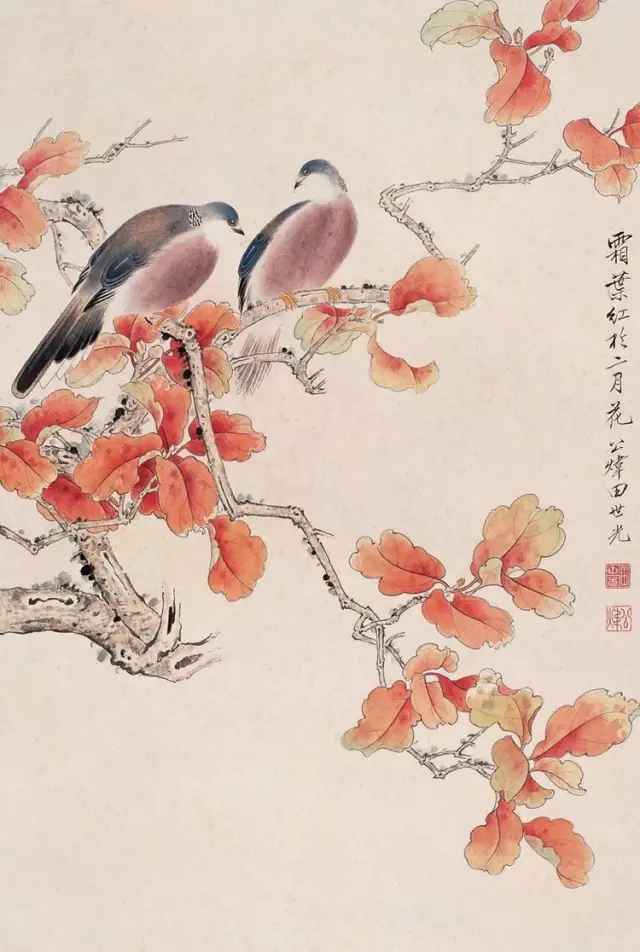 霜葉红於二月花 公煒田世光